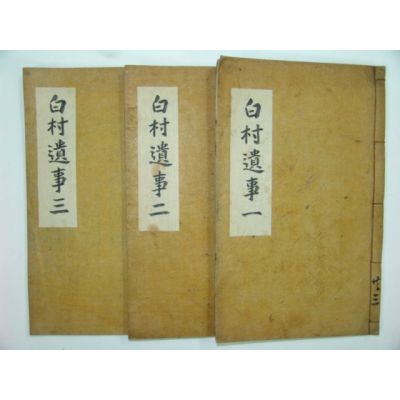 白村遺事三
白村遺事二
白村遺事一
共三